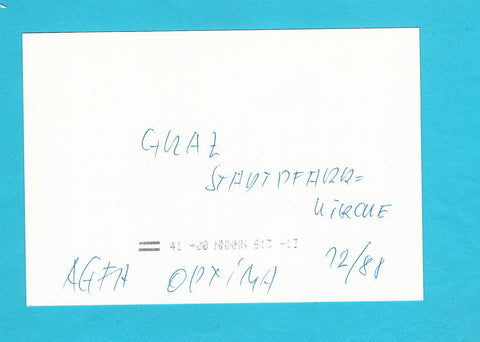 GRAZ
STADTPFARR=
KIRCHE
41 +00 NNNNN 613 -13
AGFA OPTIMA 12/88